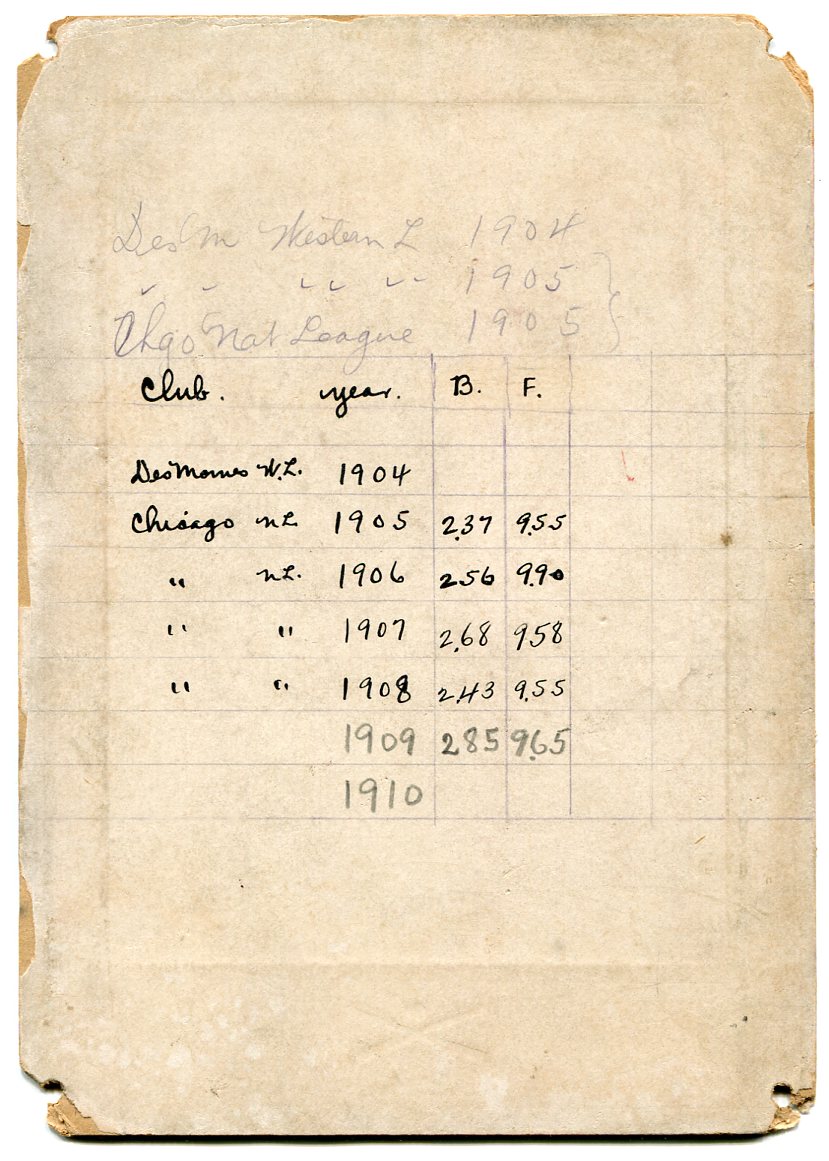 Des M Western L 1904
" " " " 1905 }
Chgo Nat League 1905 }
Club. year. B. F.
DesMoines W.L. 1904
Chicago n L. 1905 2.37 9.55
" n L. 1906 256 9.90
" " 1907 2.68 958
" " 1908 2.43 9.55
1909 285 9.65
1910